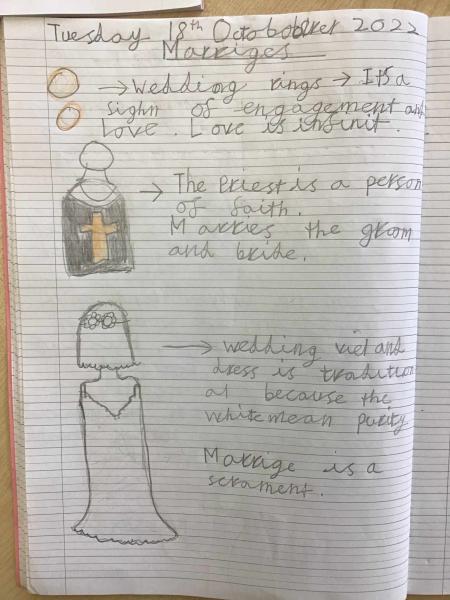 Tuesday 18th Octobobker 2022
Marriges
→ Wedding rings → It's a
sighn of engagement and
Love. Love is infinit.
→ The Priest is a person
of faith.
Marries the groom
and bride.
→ wedding viel and
dress is tradition
al because the
white mean purity
Marrige is a
scrament.